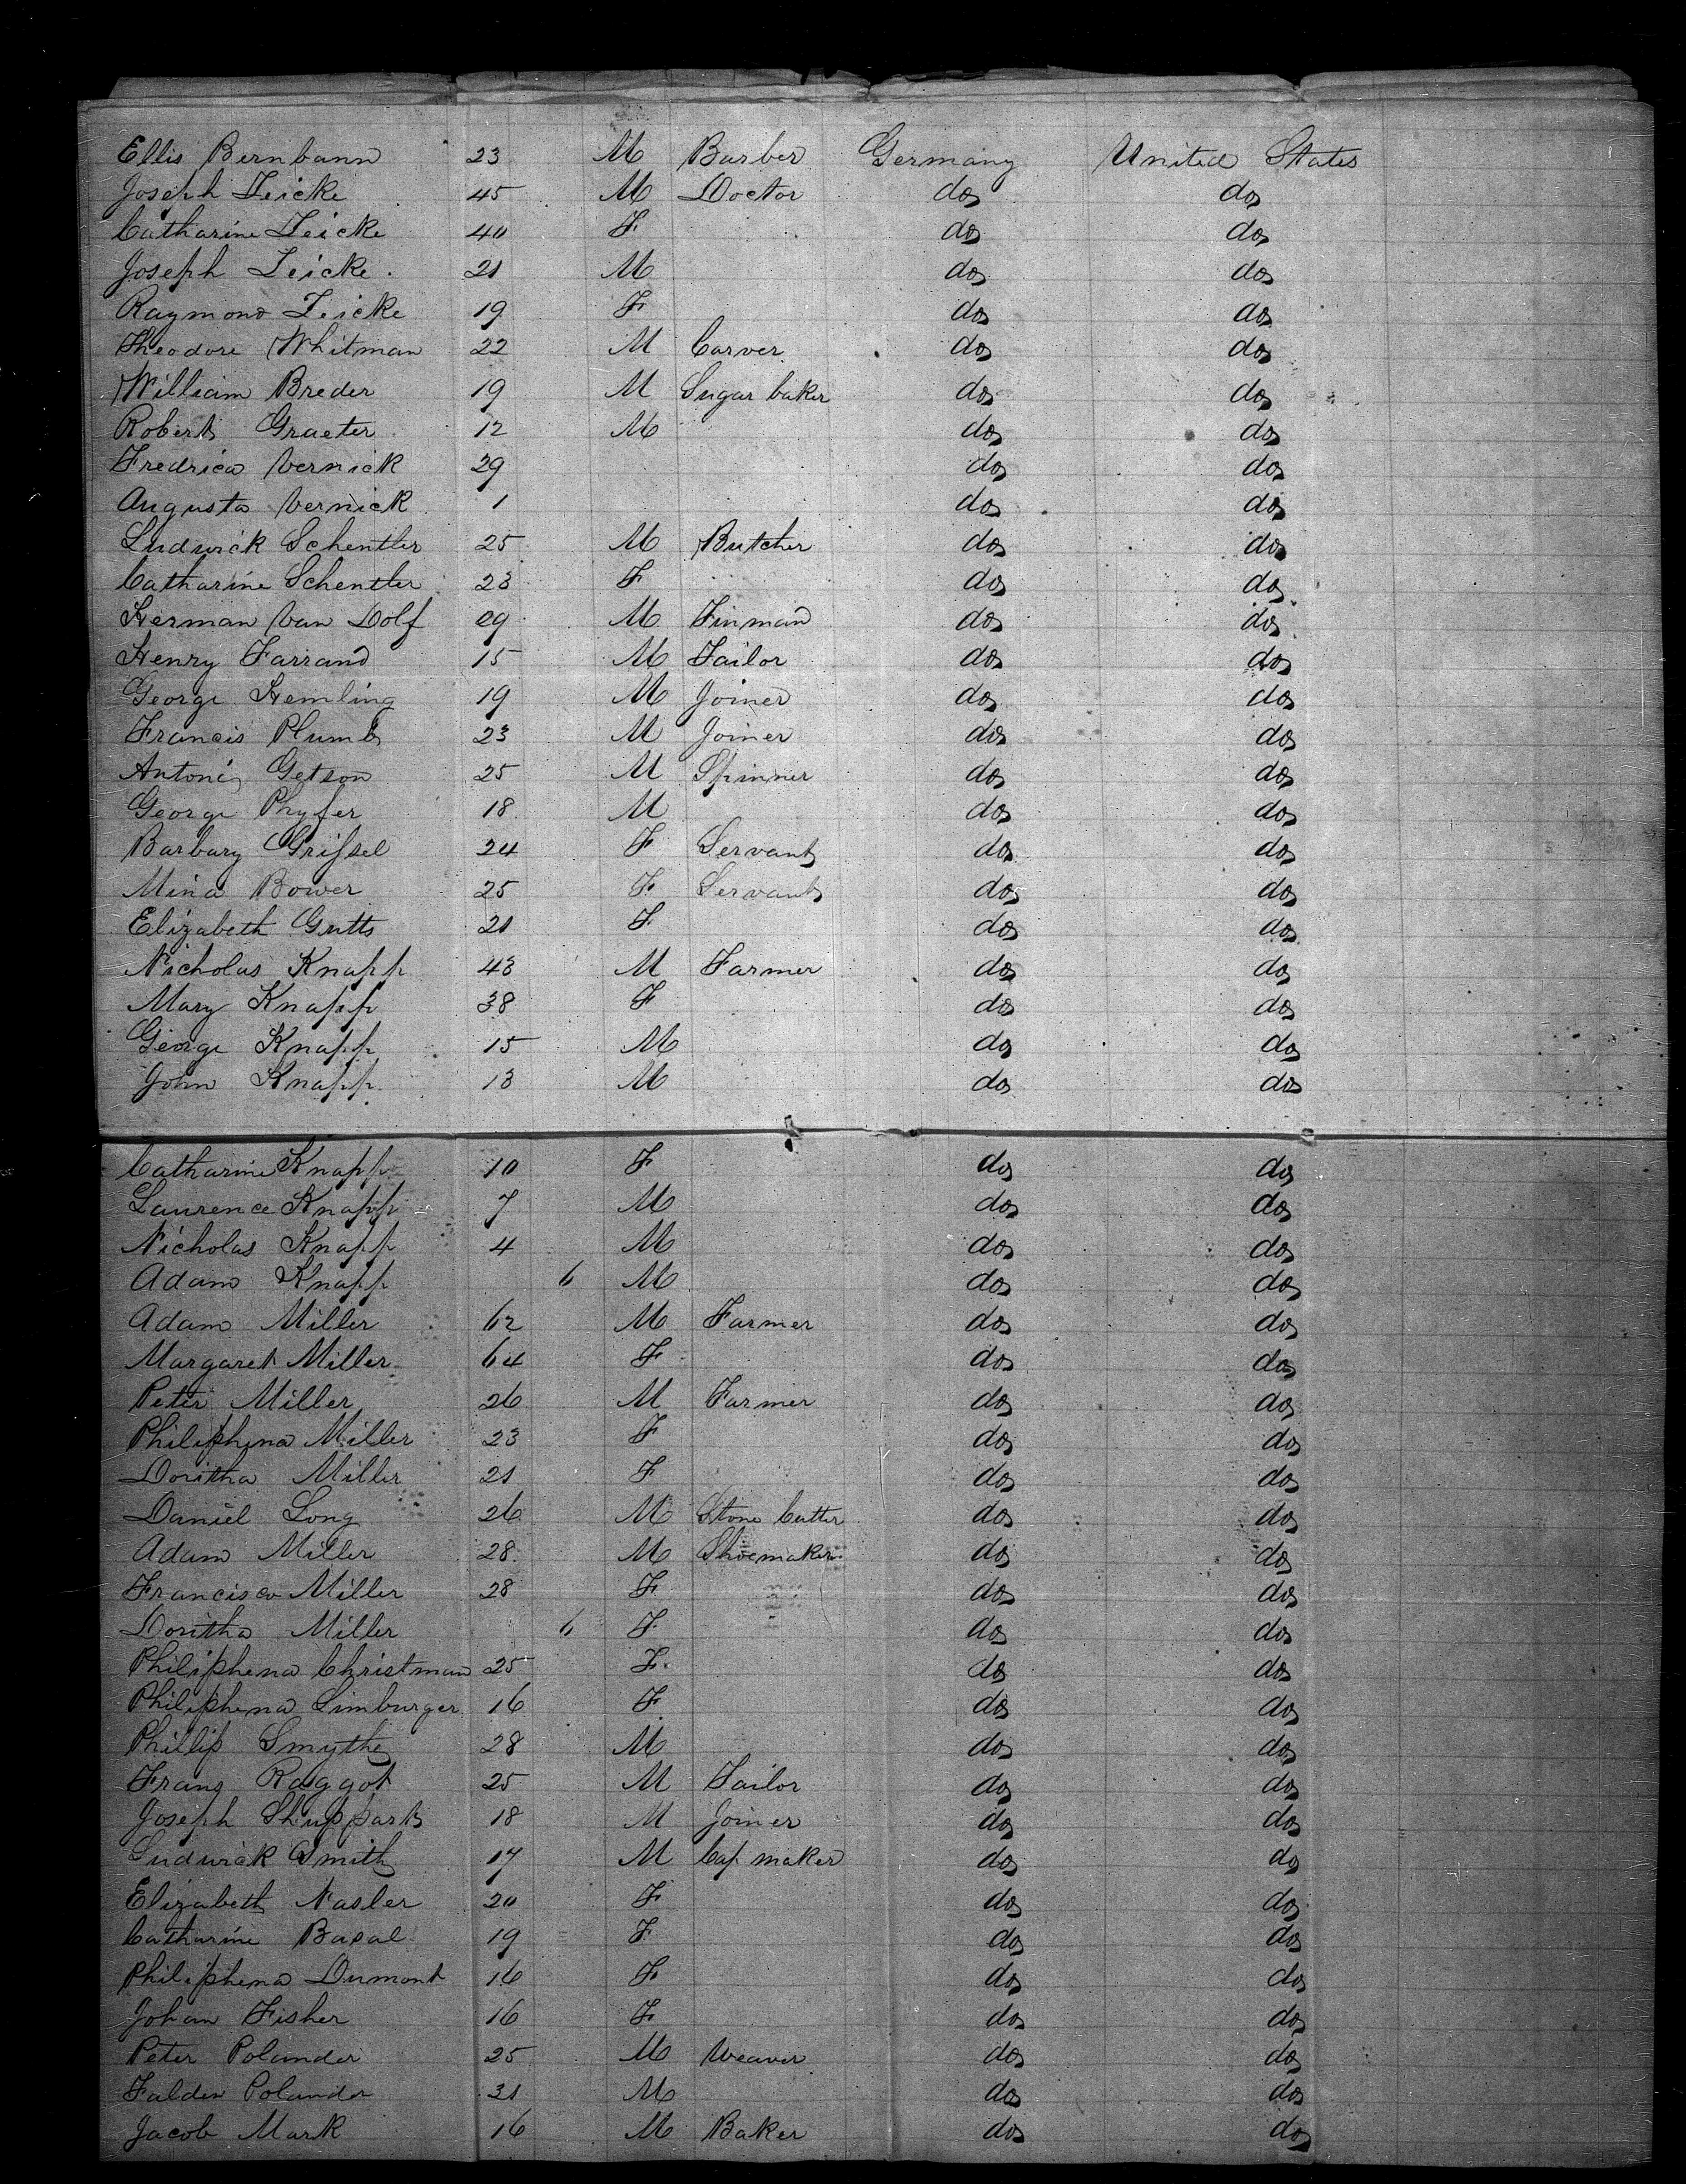 Ellis Bernbann 23 M Barber Germany United States
Joseph Zeicke 45 M Doctor do do
Catharine Zeicke 40 F do do
Joseph Zeicke 21 M do do
Raymond Zeicke 19 F do do
Theodore Whitman 22 M Carver do do
William Breder 19 M Sugar baker do do
Robert Graeter 12 M do do
Fredrica Vernick 29 do do
Augusta Vernick 1 do do
Ludwick Schentler 25 M Butcher do do
Catharine Schentler 23 F do do
Herman Van Dolf 29 M Tinman do do
Henry Farrand 15 M Tailor do do
George Hemling 19 M Joiner do do
Francis Plumb 23 M Joiner do do
Antoni Getson 25 M Spinner do do
George Phyfer 18 M do do
Barbary Grifsel 24 F Servant do do
Mina Bower 25 F Servant do do
Elizabeth Gutts 21 F do do
Nicholas Knapp 43 M Farmer do do
Mary Knapp 38 F do do
George Knapp 15 M do do
John Knapp 13 M do do
Catharine Knapp 10 F do do
Laurence Knapp 7 M do do
Nicholas Knapp 4 M do do
Adam Knapp 6 M do do
Adam Miller 62 M Farmer do do
Margaret Miller 64 F do do
Peter Miller 26 M Farmer do do
Philiphena Miller 23 F do do
Doritha Miller 21 F do do
Daniel Long 26 M Stone Cutter do do
Adam Miller 28 M Shoemaker do do
Francisca Miller 28 F do do
Doritha Miller 6 F do do
Philiphena Christman 25 F do do
Philiphena Limburger 16 F do do
Phillip Smythe 28 M do do
Franz Raggot 25 M Tailor do do
Joseph Shuppart 18 M Joiner do do
Ludwick Smith 17 M Cap maker do do
Elizabeth Nasler 20 F do do
Catharine Basal 19 F do do
Philiphena Dumont 16 F do do
Johan Fisher 16 F do do
Peter Polander 25 M Weaver do do
Falden Polander 31 M do do
Jacob Mark 16 M Baker do do